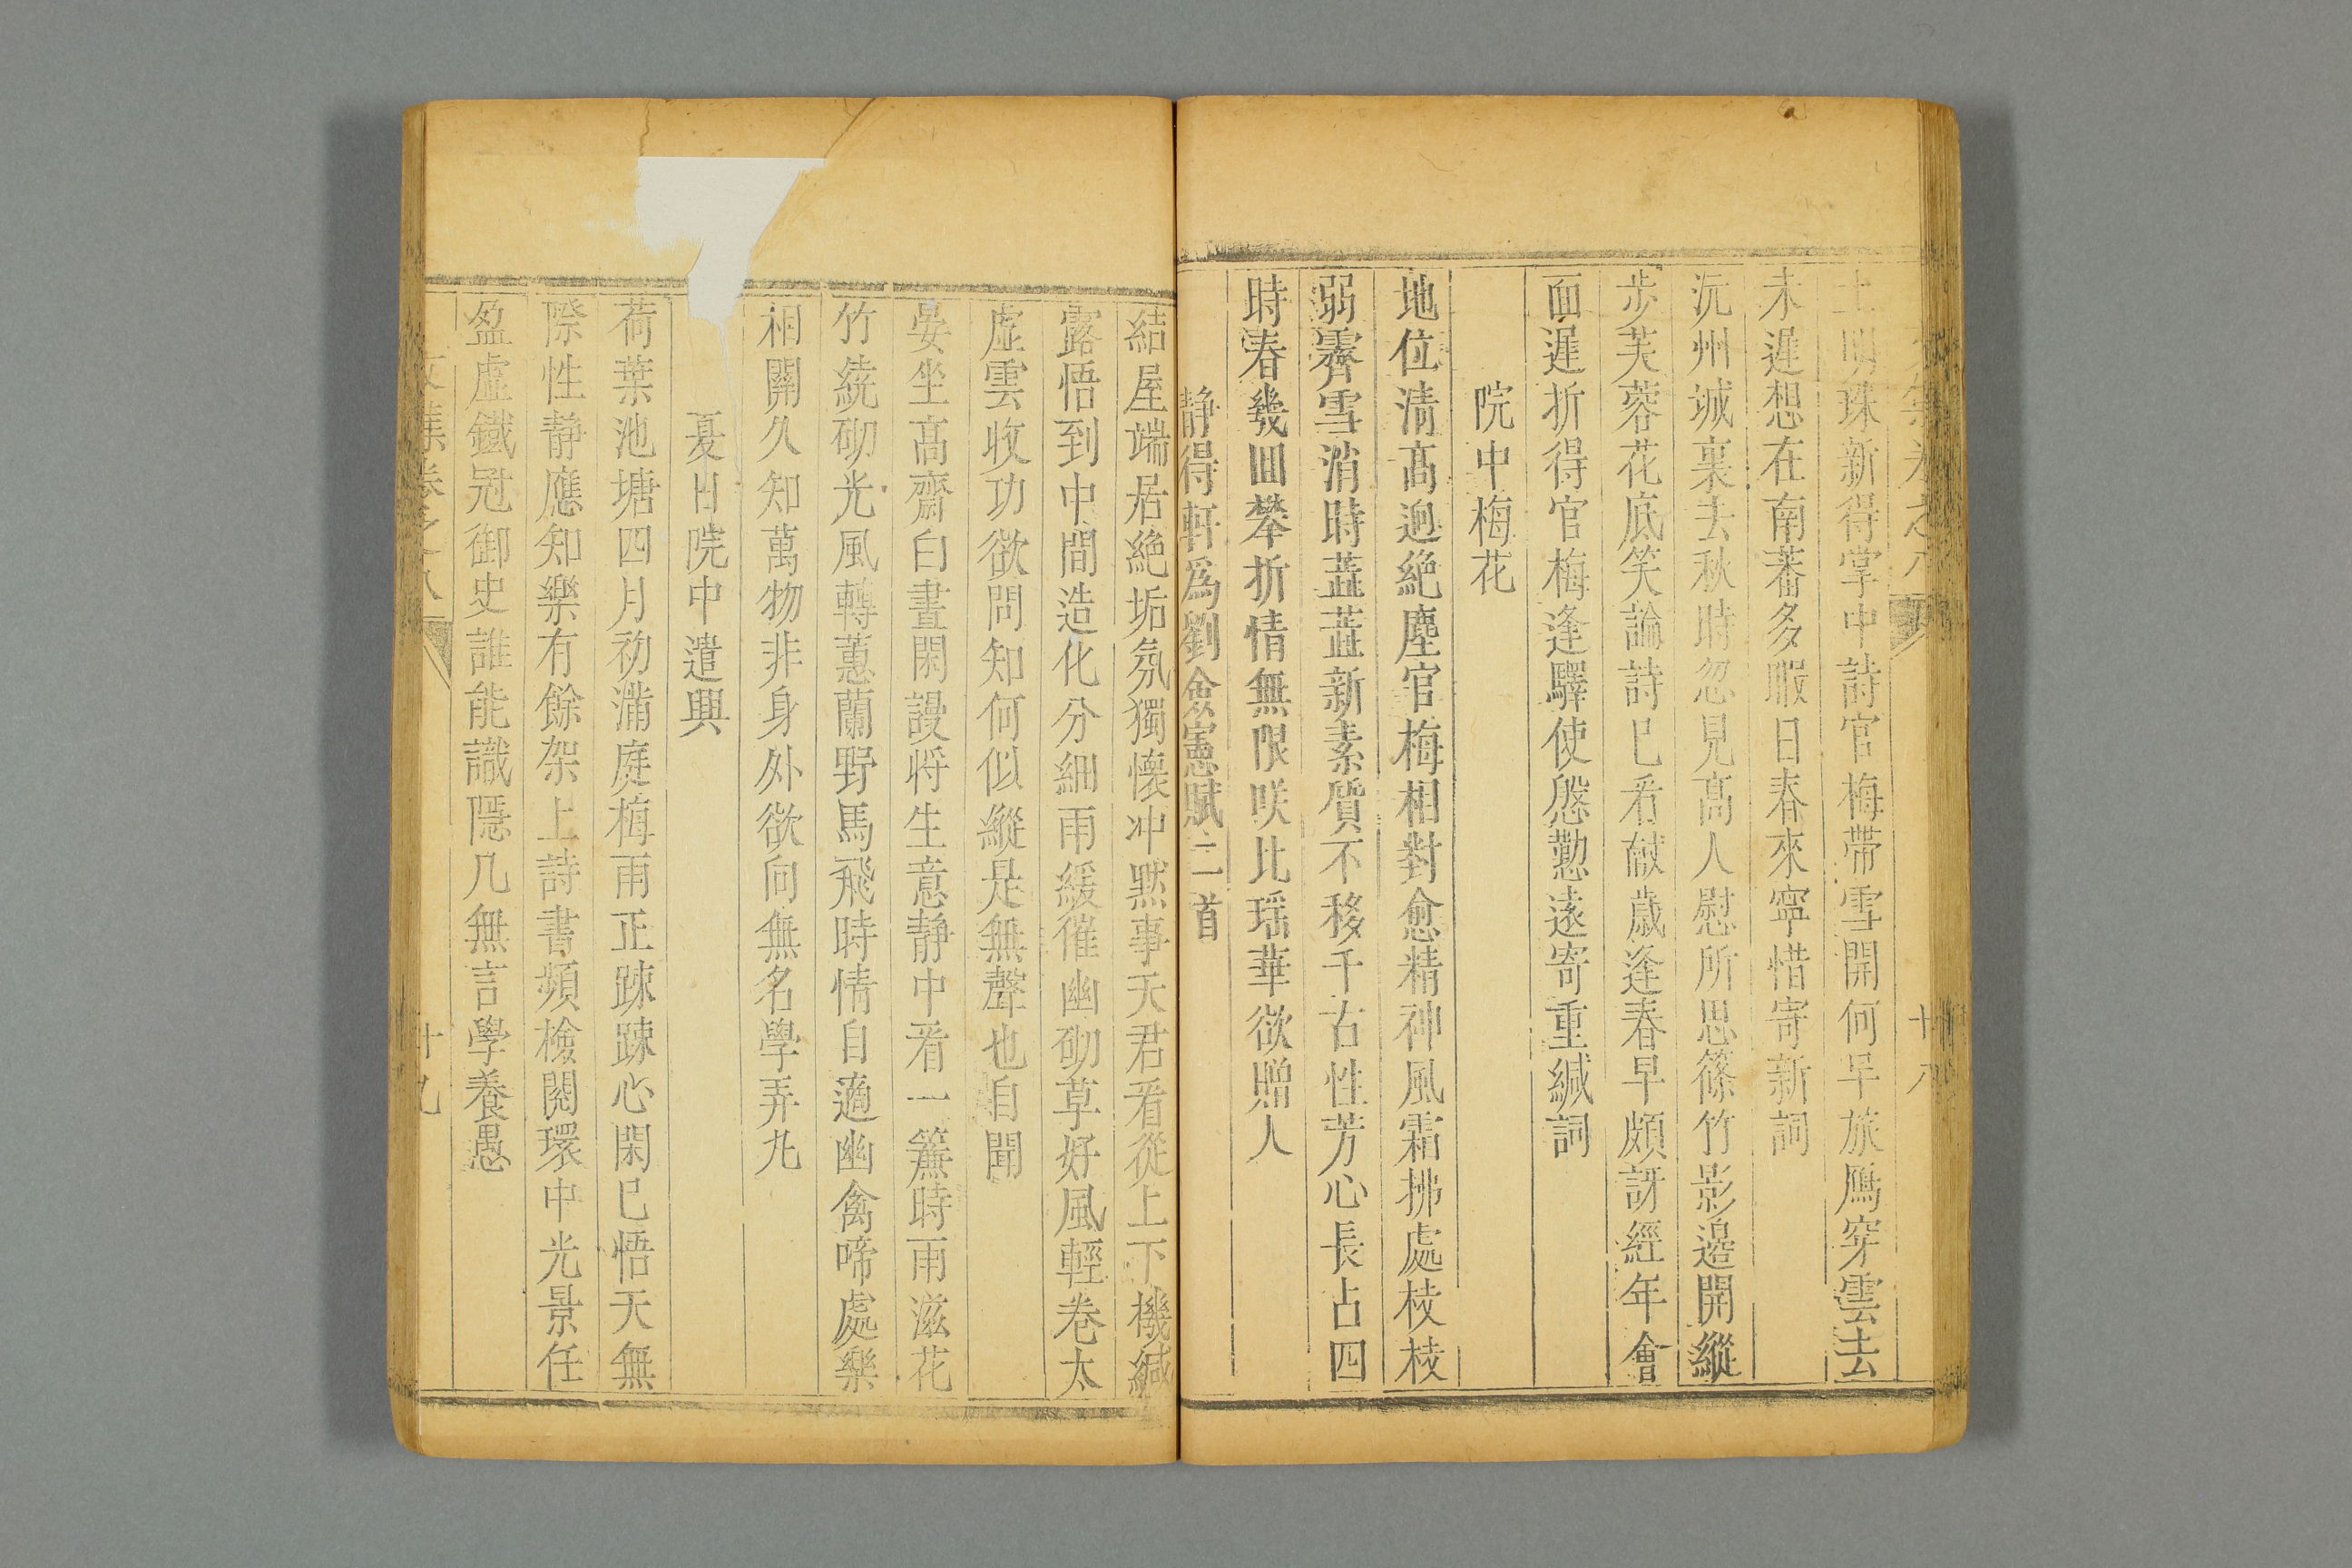 上明珠新得掌中詩官梅帶雪開何早旅鴈穿雲去
未遲想在南蕃多暇日春來寧惜寄新詞
沅州诚裏去秋時忽見髙人慰所思篠竹影邉開縱
歩芙蓉花底笑論詩已看献歳逢春早頗訝經年會
面遲折得官梅逢驛使慇懃遠寄重緘詞
院中梅花
地位清髙迥絶塵官梅相對愈精神風霜拂處枝枝
弱霽雪消時蕋蕋新素質不移千古性芳心長占四
時春幾回攀折情無限咲比瑶華欲贈人
静得軒爲劉僉憲賦二首
結屋端居絶垢氛獨懐冲黙事天君看從上下機緘
露悟到中間造化分細雨緩催幽砌草好風輕巻太
虚雲收功欲問知何似縱是無聲也自聞
晏坐髙齋白晝閑謾将生意静中看一簾時雨滋花
竹繞砌光風轉蕙蘭野馬飛時情自適幽禽啼處樂
相關久知萬物非身外欲向無名學弄丸
夏日院中遣興
荷葉池塘四月初滿庭梅雨正踈踈心閑已悟天無
際性静應知樂有餘架上詩書頻檢閲環中光景任
盈虚鐵冠御史誰能識隱几無言學養愚